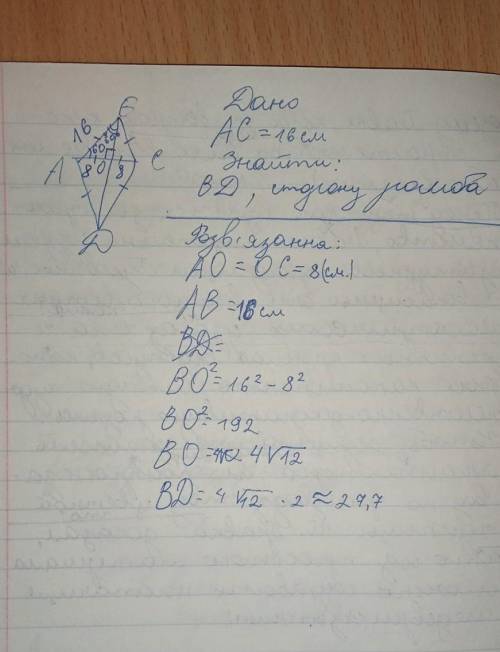 16
A
8
O
8
C
D
Дано
AC = 16 см
Знайти:
BD, сторону ромба
Розв'язання:
AO = OC = 8 (см.)
AB = 16 см
BD =
BO² = 16² - 8²
BO² = 192
BO = 4√12
BD = 4√12 · 2 ≈ 27,7